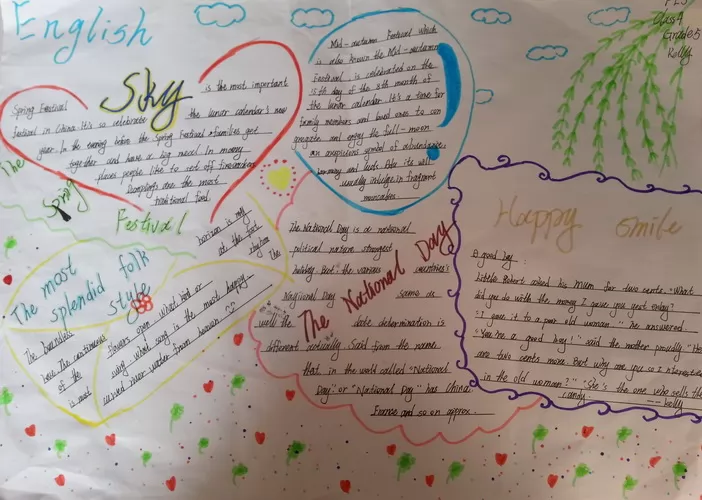 English
Sky
Spring Festival is the most important
festival in China It's so celebrate the lunar calendar's new
year. In the evening before the Spring Festival families get
together and have a big meal In many
places people like to set off firecrackers
Dumplings are the most
traditional food
The
Spring
Festival
Mid-autumn Festival which
is also known the Mid-autumn
Festival is celebrated on the
15th day of the 8th month of
the lunar calendar. It's a time for
family members and loved ones to con
gregate and enjoy the full-moon
an auspicious symbol of abundance
harmony and luck
usually indulge in fragrant
mooncakes
Class4
Grade5
Kelly
The most
splendid folk
style
The
of the
is most
flowers open what bird or
sing what song is the most happy
horizon is my
The National Day
The National Day is a national
political nature strongest
holiday But the various countries'
National Day name is
well the date determination is
different actually Said from the name
that in the world called "National
Day" or "National Day" has China,
France and so on approx.
Happy smile
A good boy
Little Robert asked his mum for two cents. "What
did you do with the money I gave you yesterday?"
"I gave it to a poor old woman" he answered
"You're a good boy!" said the mother proudly "Here
are two cents more. But why are you so interested
in the old woman?" "She's the one who sells the
candy.
--Kelly